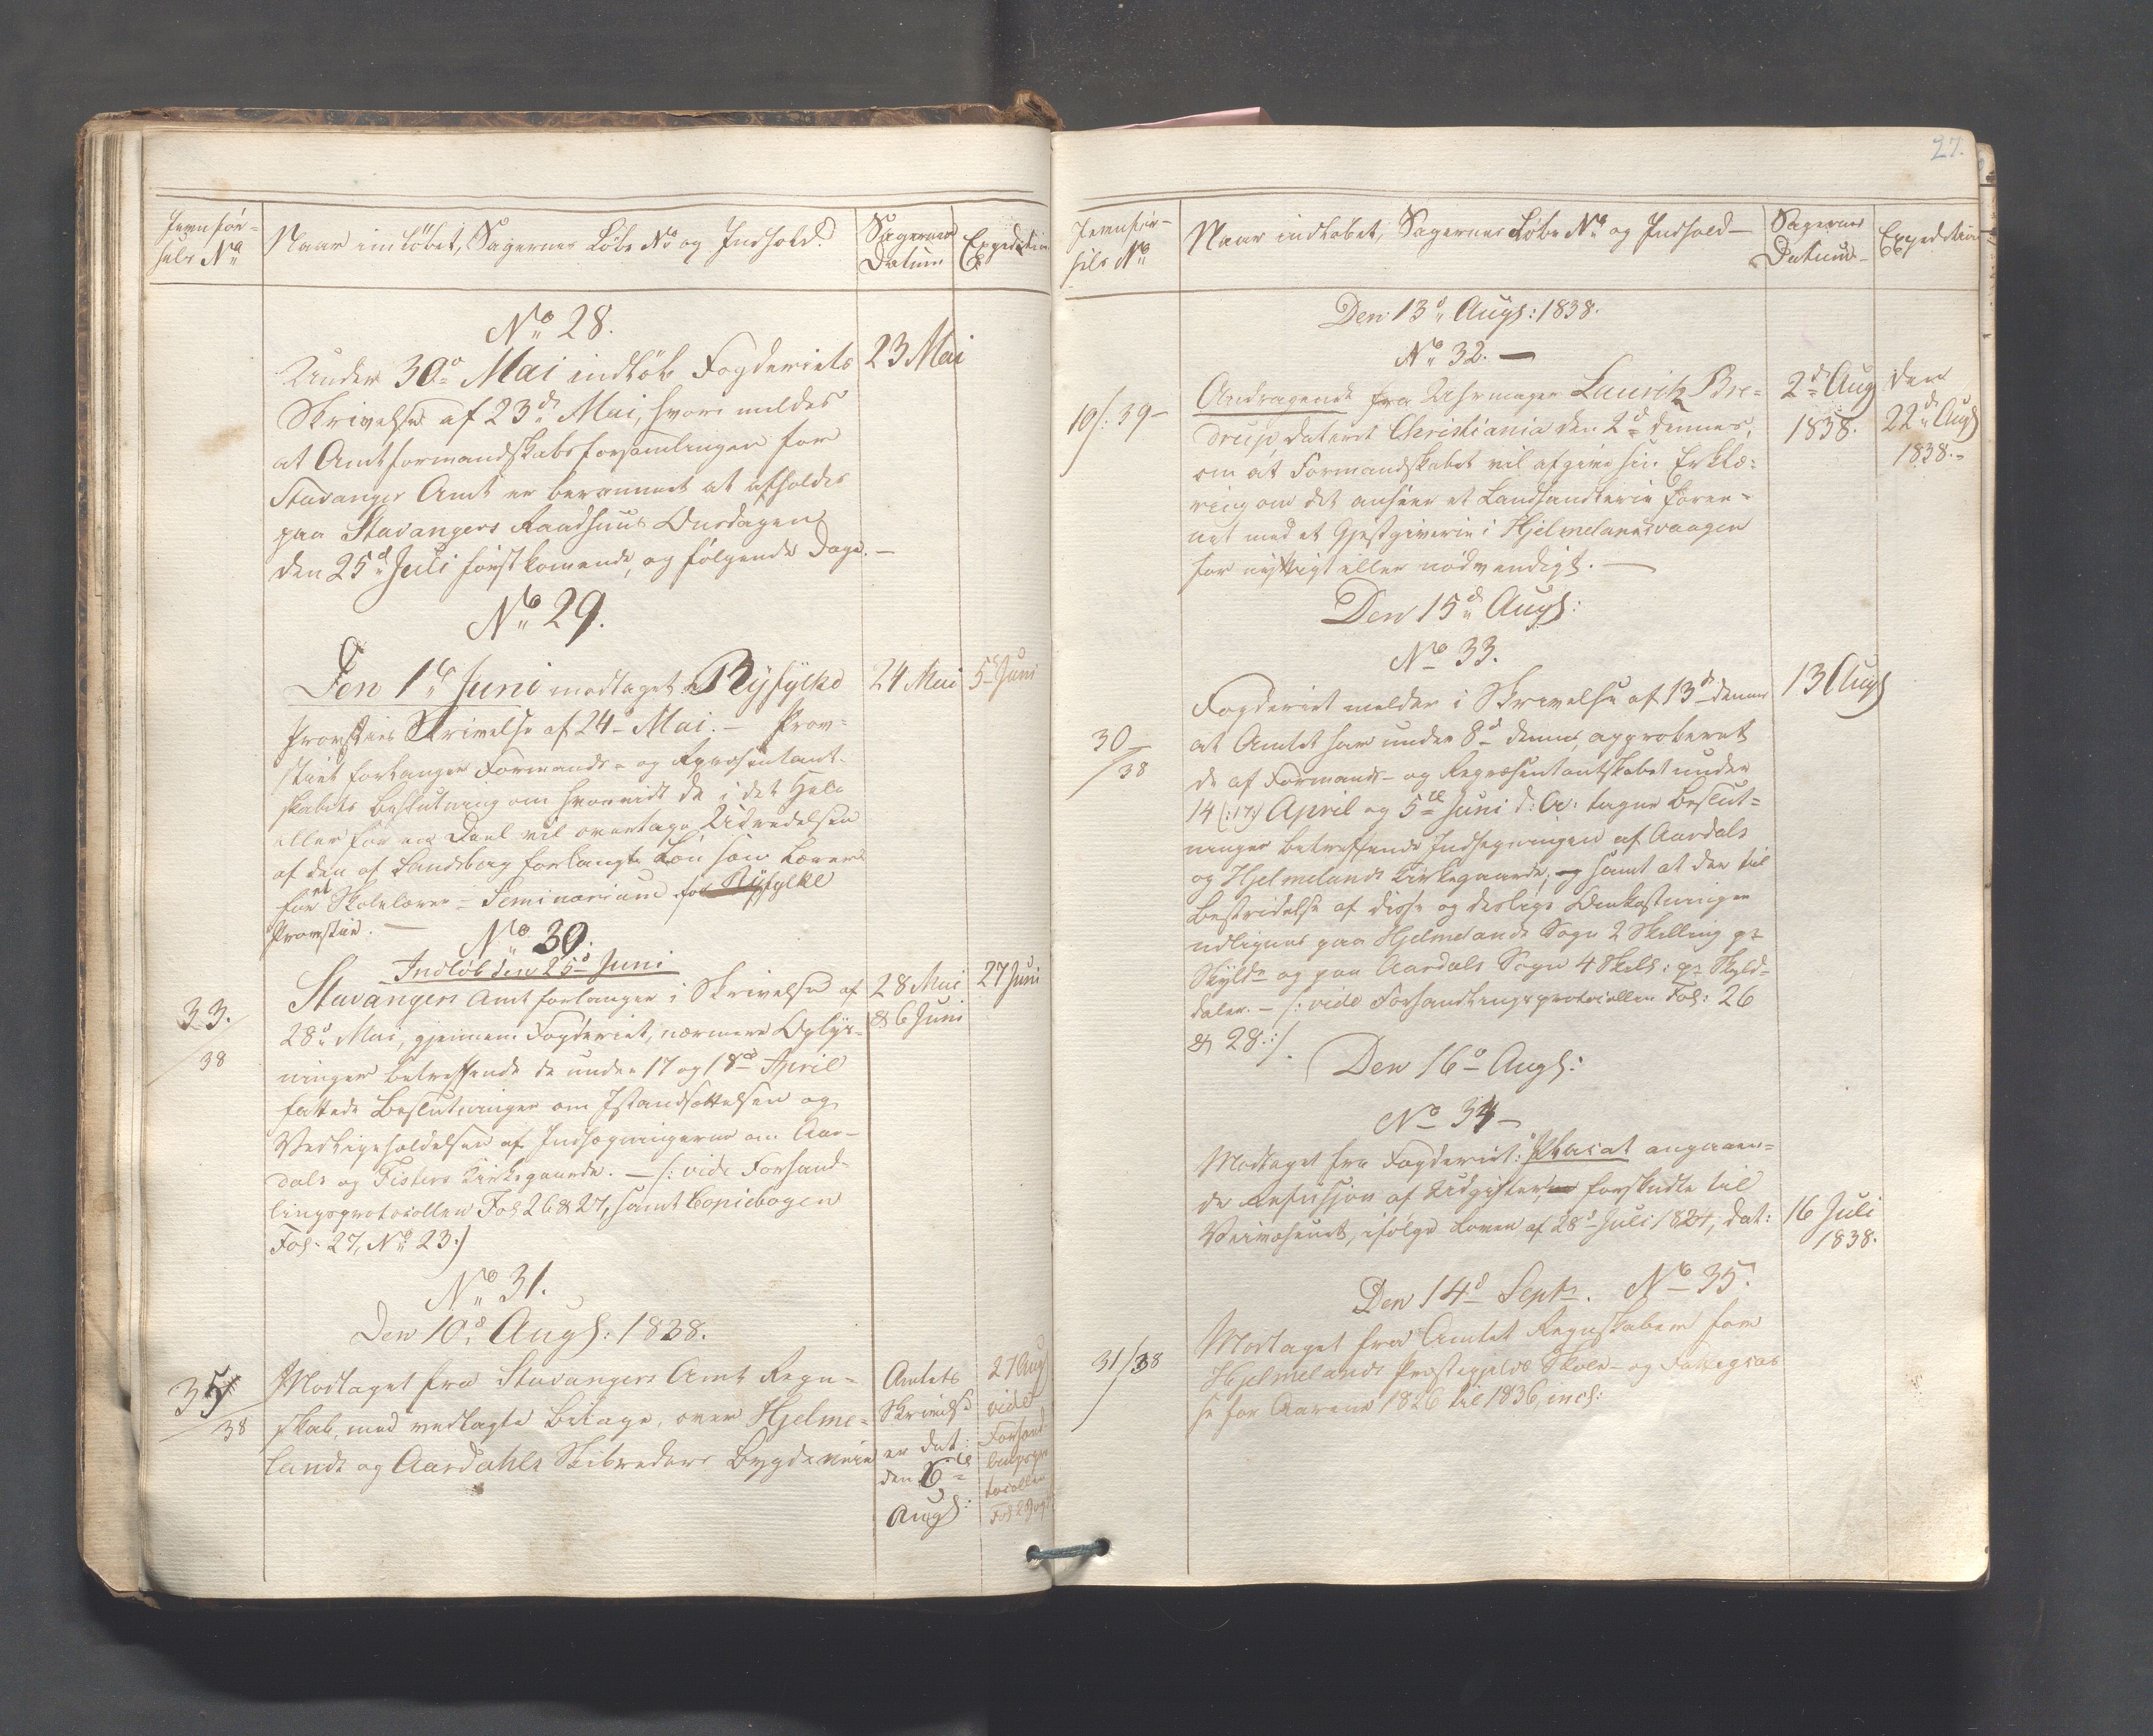 Jevnfør-
sels No
Naar indløbet, Sagernes Løbe No og Indhold.
Sagernes
Datum
Expedition
No 28.
Under 30d Mai indløb Fogderiets
23 Mai
Skrivelse af 23d Mai, hvori meldes
at Amtformandskabsforsamlingen for
Stavanger Amt er berammet at afholdes
paa Stavangers Raadhuus Onsdagen
den 25d Juli førstkomende, og følgende Dage. -
No 29.
Den 1ste Juni modtaget Ryfylke
24 Mai
5 Juni
Provsties Skrivelse af 24 Mai. - Prov-
stiet forlanger Formands- og Repræsentant-
skabets Beslutning om hvorvidt de i det Hele
eller for en Deel vil overtage Udredelsen
af den af Landsberg forlangte Løn som Lærer
for et Skolelærer-Seminarium for Ryfylke
Provstie. -
No 30.
Indløb den 25d Juni
33.
/38
Stavangers Amt forlanger i Skrivelse af
28 Mai
& 6 Juni
27 Juni
28d Mai, gjennem Fogderiet, nærmere Oplys-
ninger betreffende de under 17 og 18d April
fattede Beslutninger om Istandsættelsen og
Vedligeholdelsen af Indhægningerne om Aar-
dals og Fisters Kirkegaarde. - /: vide Forhand-
lingsprotocollen Fol 26 & 27, samt Copiebogen
Fol. 27, No 23:/
No 31.
Den 10d Augs: 1838.
35
/38
Modtaget fra Stavangers Amt Regn-
skab, med vedlagte Bilage, over Hjelme-
lands og Aardahls Skibreders Bygdeveie
Amtets
Skrivelse
er dat:
den 6te
Augs:
27 Aug
vide
Forhand-
lingspro-
tocollen
27.
Jevnfør-
sels No
Naar indløbet, Sagernes Løbe No og Indhold -
Sagernes
Datum -
Expedition
Den 13d Augs: 1838.
No 32. -
10/: 39 -
Andragende fra Uhrmager Lauritz Bre-
2d Aug
1838.
den
22d Augs
1838. -
drup, dateret Christiania den 2d dennes,
om at Formandskabet vil afgive sin Erklæ-
ring om det anseer et Landhandlerie foree-
net med et Gjestgiverie i Hjelmelandsvaagen
for nyttigt eller nødvendigt. -
Den 15d Augs:
No 33.
30
/38
Fogderiet melder i Skrivelse af 13d dennes
13 Augs
at Amtet har under 8d dennes approberet
de af Formands- og Repræsentantskabet under
14 (: 17) April og 5te Juni d: A: tagne Beslut-
ninger betreffende Indhegningen af Aardals
og Hjelmelands Kirkegaarde, og samt at der til
Bestridelse af disse og deslige Omkostninger
udlignes paa Hjelmelands Sogn 2 Skilling pr
Skyldr og paa Aardals Sogn 4 Skill: pr Skyld-
daler. - /: vide Forhandlingsprotocollen Fol: 26
& 28 :/.
Den 16d Augs:
No 34 -
Modtaget fra Fogderiet: Placat angaaen-
de Refusion af Udgifter forskudte til
Veivæsenet, ifølge Loven af 28d Juli 1824, dat:
16 Juli
1838.
Den 14d Septr. No 35.
31/38
Modtaget fra Amtet Regnskaber for
Hjelmelands Prestegjelds Skole- og Fattigcas-
se for Aarene 1826 til 1836 incl: